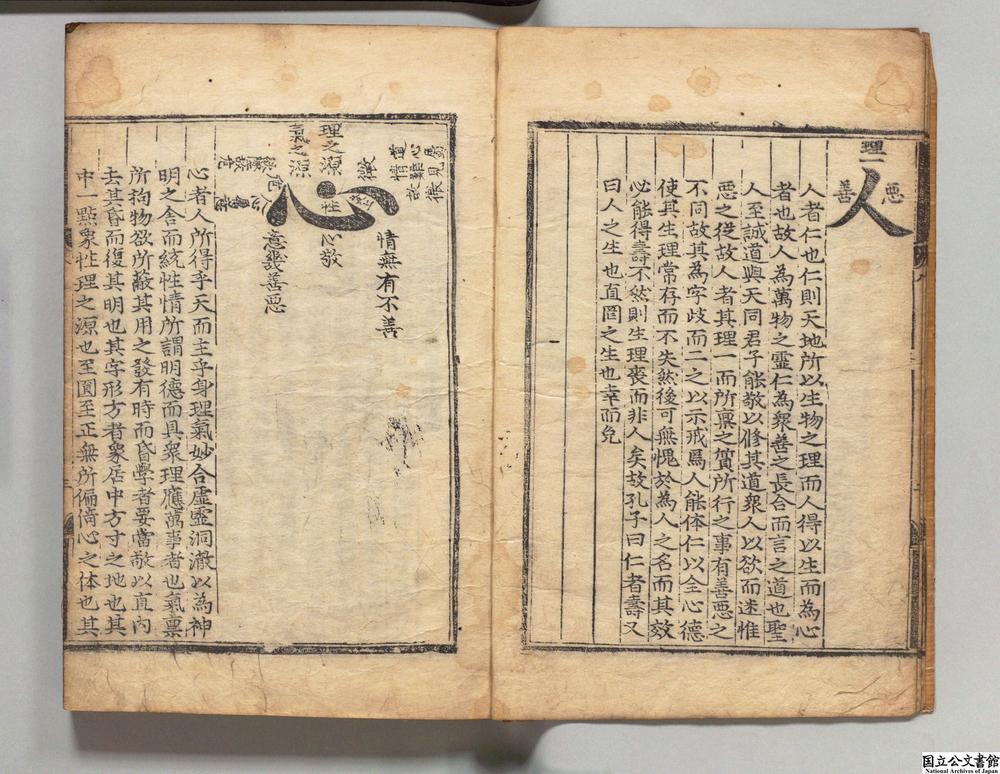 理一
人
善
惡
人者仁也仁則天地所以生物之理而人得以生而為心
者也故人為萬物之靈仁為衆善之長合而言之道也聖
人至誠道與天同君子能敬以修其道衆人以欲而迷惟
惡之從故人者其理一而所稟之質所行之事有善惡之
不同故其為字歧而二之以示戒焉人能体仁以全心德
使其生理常存而不失然後可無愧於為人之名而其效
必能得壽不然則生理喪而非人矣故孔子曰仁者壽又
曰人之生也直罔之生也幸而免
心
發見微
道心
情難
故
微
情無有不善
理之源
性
心敬
氣之源
危
意幾善惡
心者人所得乎天而主乎身理氣妙合虛靈洞澈以為神
明之舍而統性情所謂明德而具衆理應萬事者也氣稟
所拘物欲所蔽其用之發有時而昏學者要當敬以直內
去其昏而復其明也其字形方者象居中方寸之地也其
中一點象性理之源也至圓至正無所偏倚心之体也其
国立公文書館
National Archives of Japan